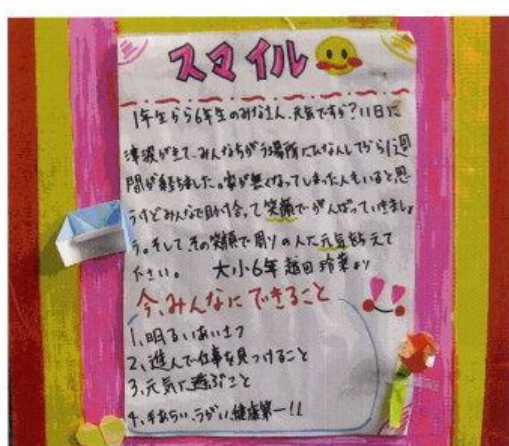 スマイル
1年生から6年生のみなさん、元気ですか?11日に
津波がきて、みんなちがう場所にひなんしてから1週
間が経ちました。家が無くなってしまった人もいると思
うけどみんなで助け合って笑顔でがんばっていきましょ
う。そしてその笑顔で周りの人に元気を与えて
下さい。 大小6年 越田 玲菜より
今、みんなにできること
1、明るいあいさつ
2、進んで仕事を見つけること
3、元気に遊ぶこと
4、手あらい、うがい、健康第一!!